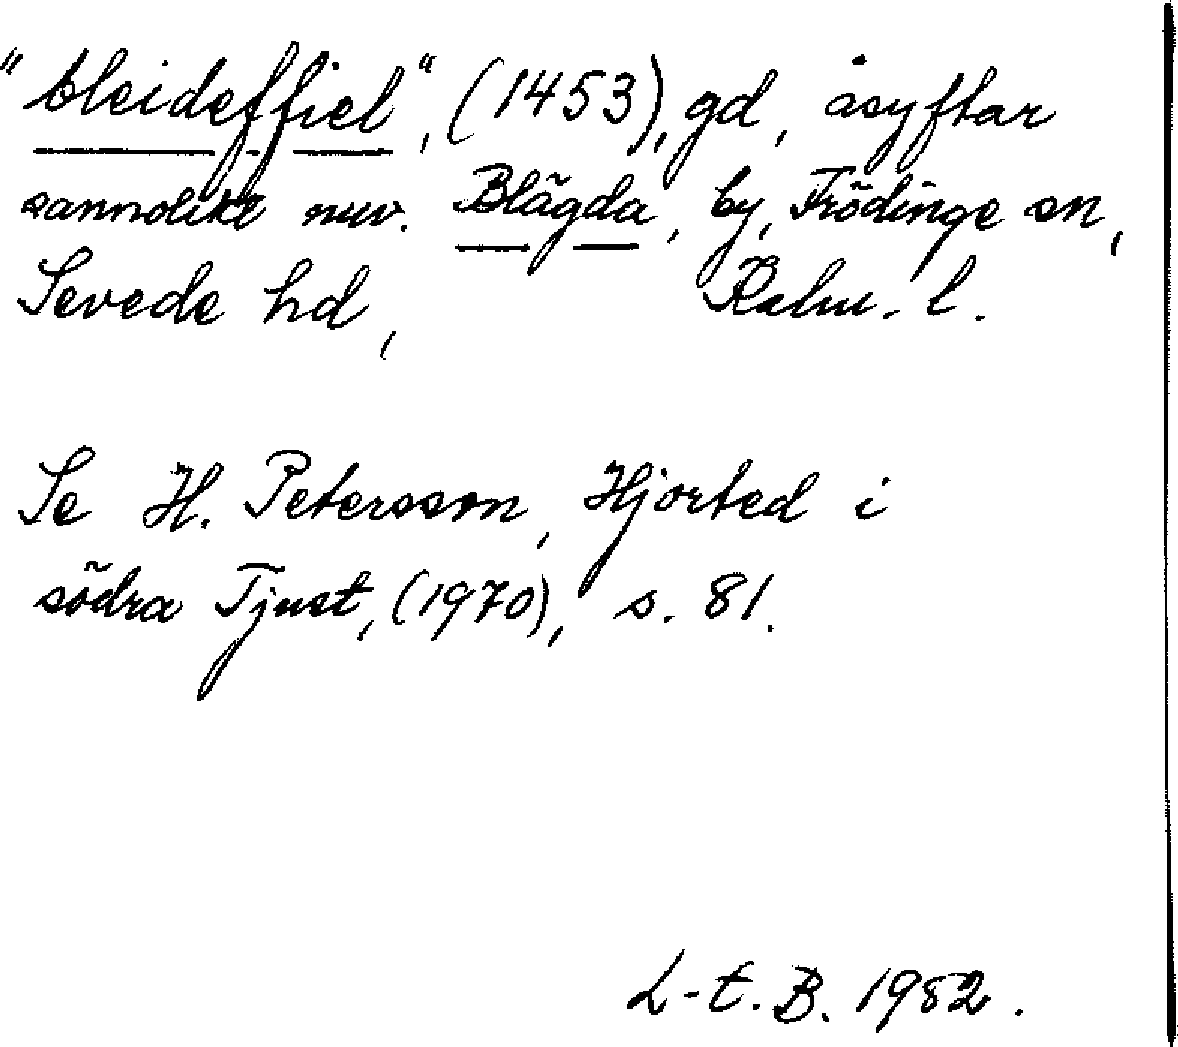 "bleideffiel", (1453), gd, åsyftar
sannolikt nuv. Blägda, by, Frödinge sn,
Sevede hd, Kalm. l.
Se H. Petersson, Hjorted i
södra Tjust, (1970), s. 81.
L-E. B. 1982.